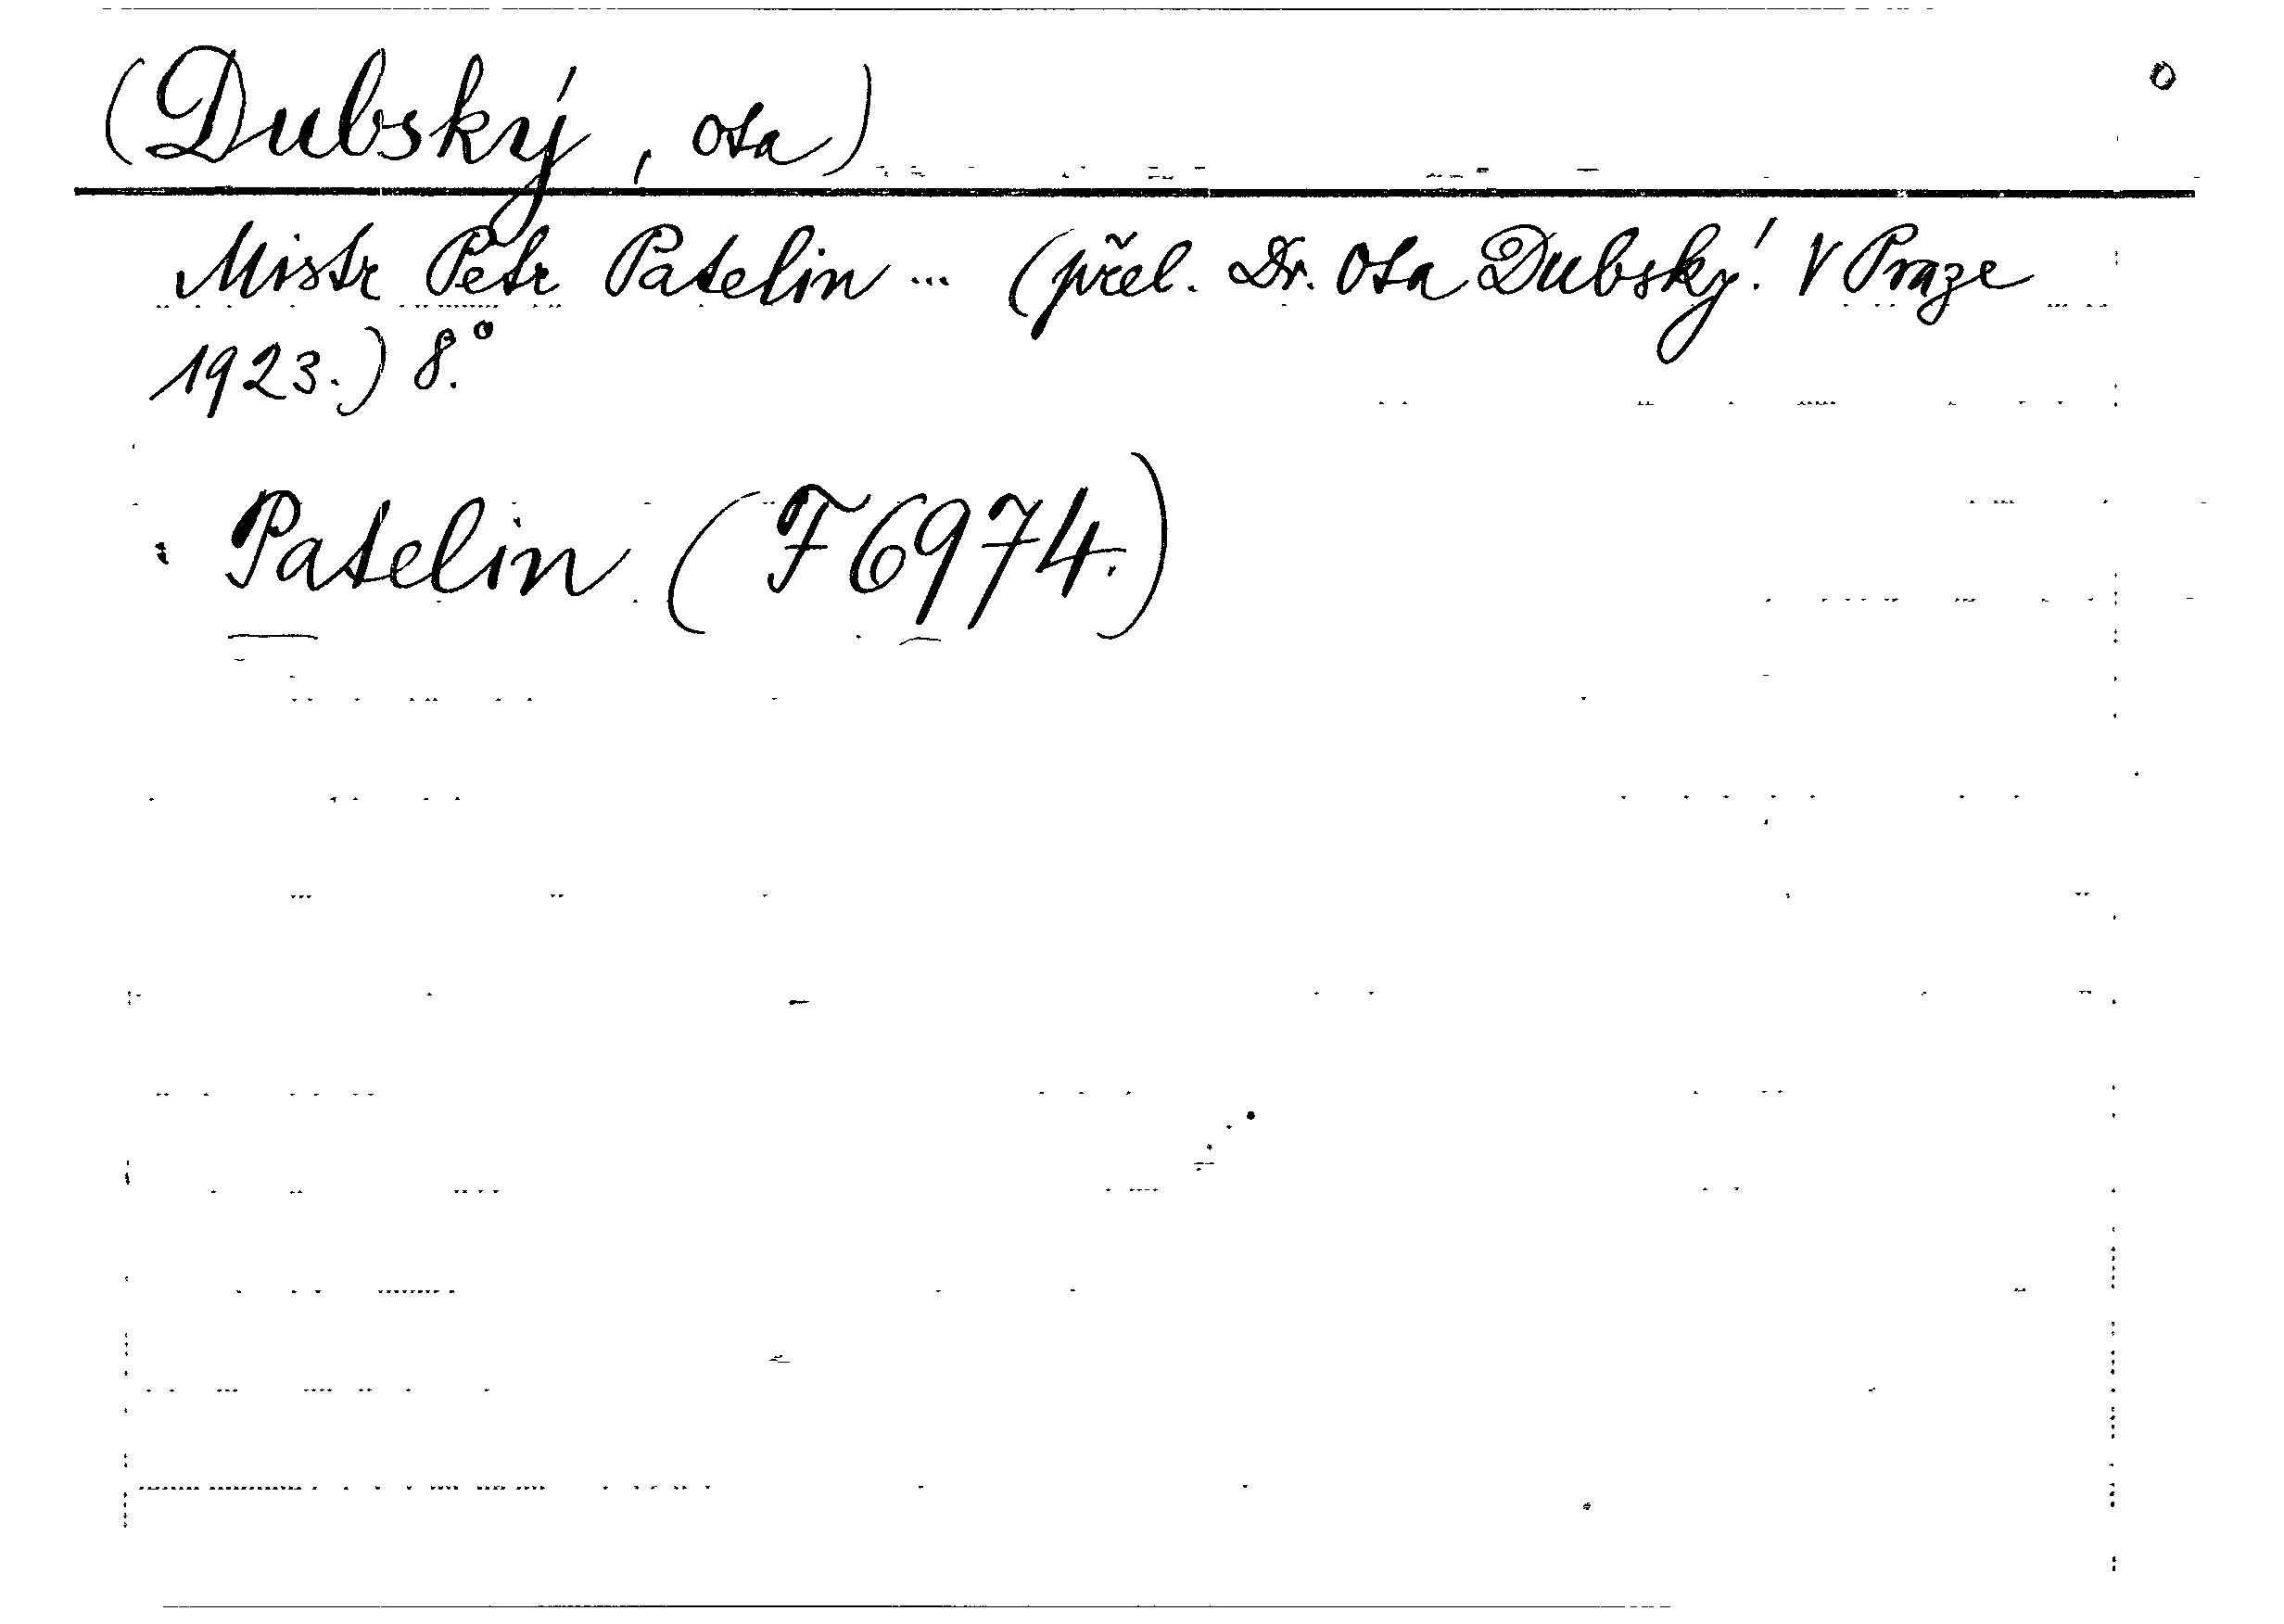 (Dubský, Ota)
Mistr Petr Patelin ... (přel. Dr. Ota Dubský. V Praze
1923.) 8.°
Patelin (F 6974.)